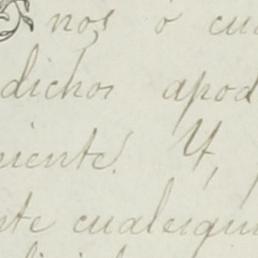 nos ó cu
dichos apod
iente. Y,
nte cualesqui